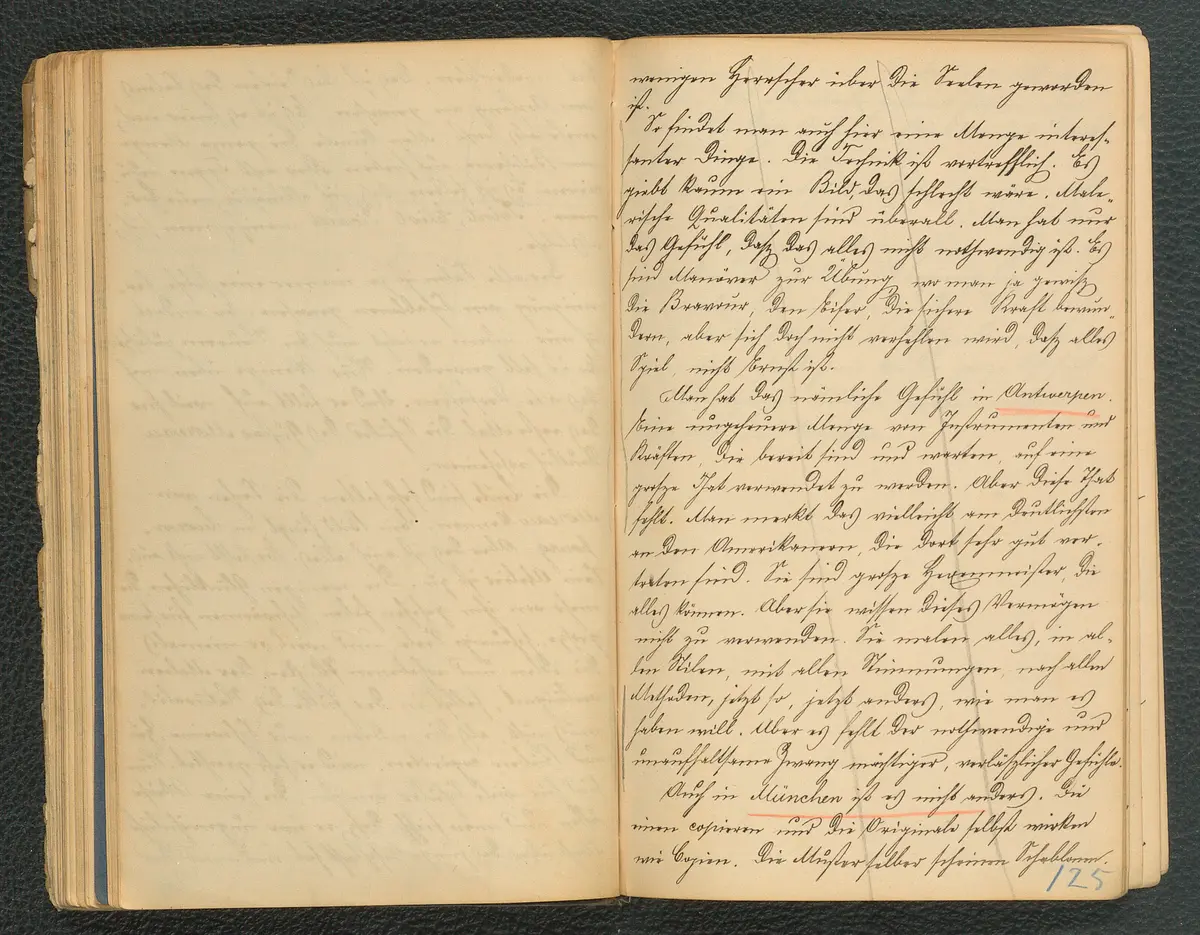 wenigen Herrscher über die Seelen geworden
ist.
So findet man auch hier eine Menge interes-
santer Dinge. Die Technik ist vortrefflich. Es
giebt kaum ein Bild, das schlecht wäre. Male-
rische Qualitäten sind überall. Man hat nur
das Gefühl, dasz das alles nicht nothwendig ist. Es
sind Manöver zur Übung, wo man ja gewisz
die Bravour, den Eifer, die sichere Kraft bewun-
dern, aber sich doch nicht verhehlen wird, dasz alles
Spiel, nicht Ernst ist.
Man hat das nämliche Gefühl in Antwerpen.
Eine ungeheuere Menge von Instrumenten und
Kräften, die bereit sind und warten, auf eine
grosze That verwendet zu werden. Aber diese That
fehlt. Man merkt das vielleicht am deutlichsten
an den Amerikanern, die dort sehr gut ver-
treten sind. Sie sind grosze Hexenmeister, die
alles können. Aber sie wissen dieses Vermögen
nicht zu verwenden. Sie malen alles, in al-
len Stilen, mit allen Stimmungen, nach allen
Methoden, jetzt so, jetzt anders, wie man es
haben will. Aber es fehlt der nothwendige und
unaufhaltsame Zwang mächtiger, verläszlicher Gefühle.
Auch in München ist es nicht anders. Die
einen copieren und die Originale selbst wirken
wie Copien. Die Muster selber scheinen Schablonen.
125